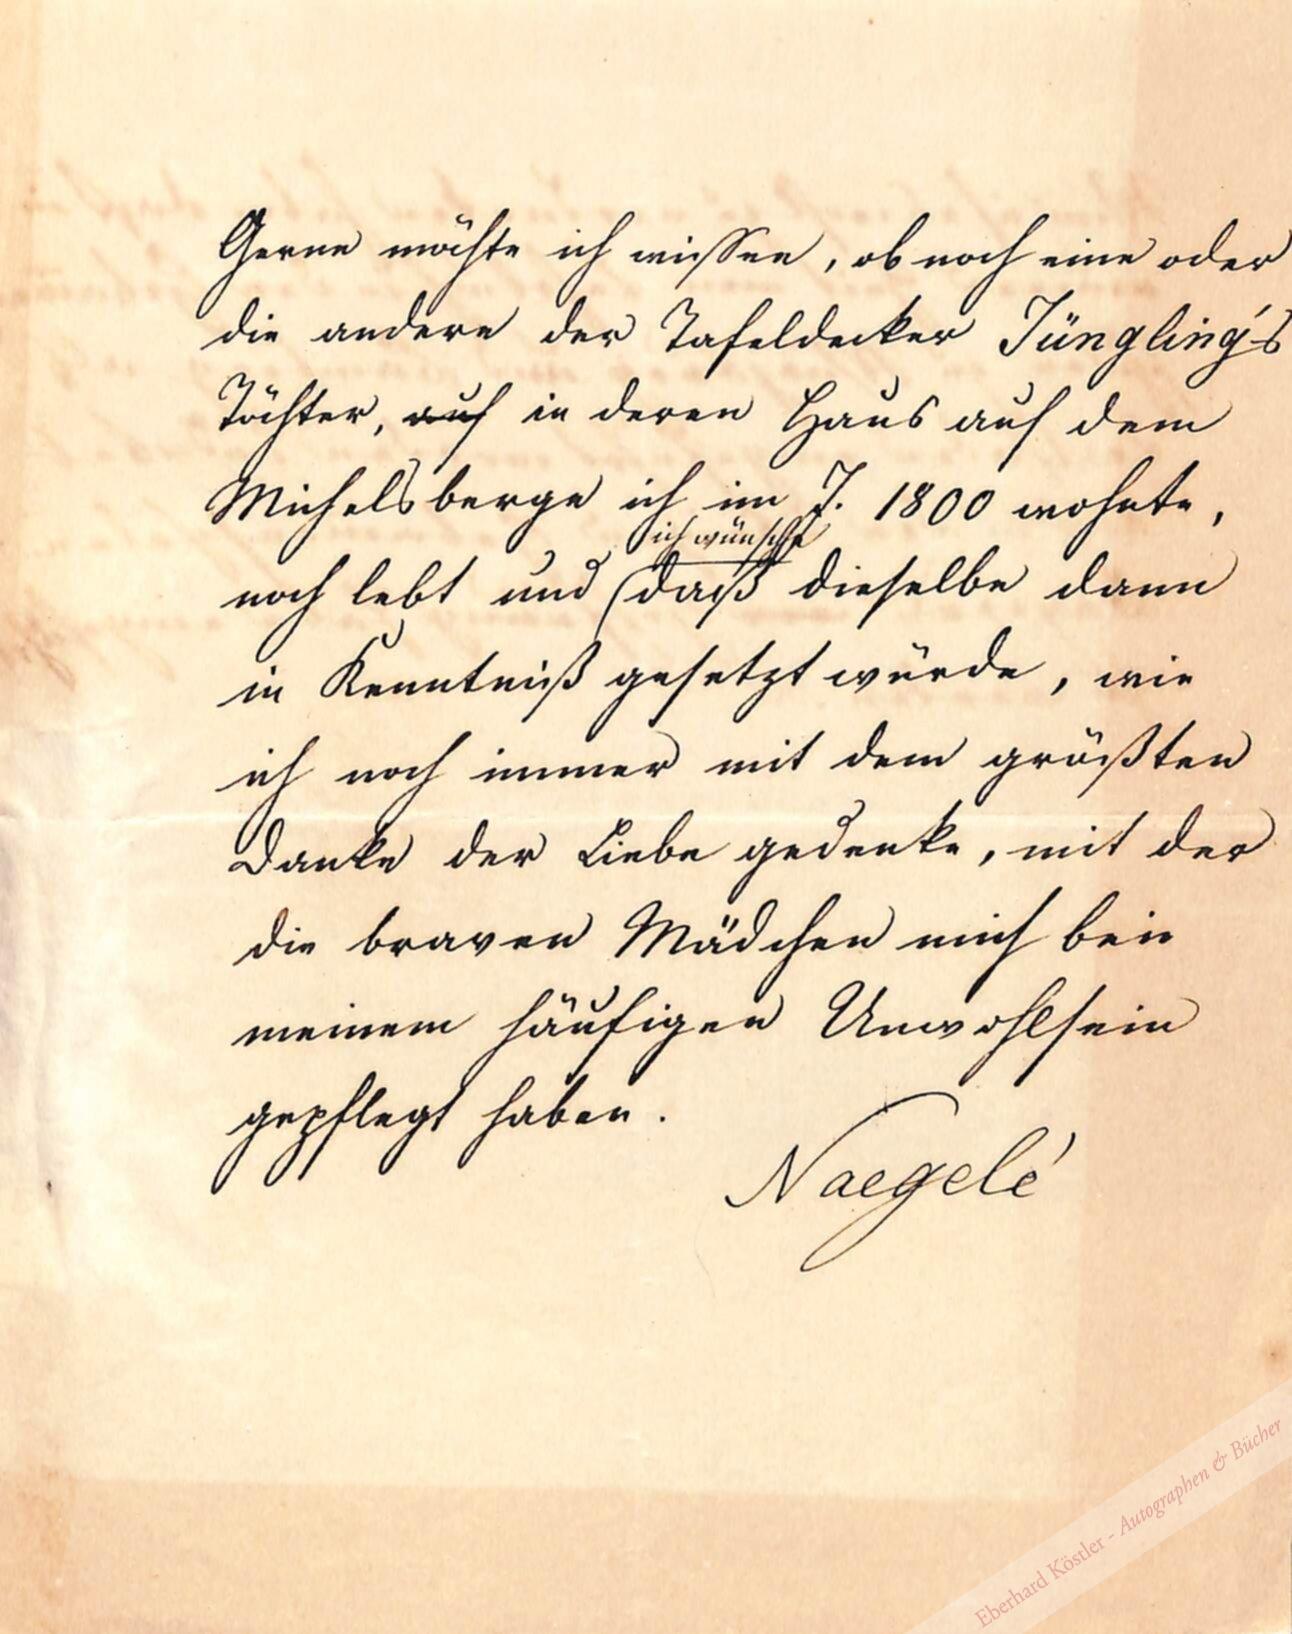 Gerne möchte ich wissen, ob noch eine oder
die andere der Tafeldecker Jüngling's
Töchter, auf in deren Haus auf dem
Michelsberge ich im J. 1800 wohnte,
ich wünsche
noch lebt und daß dieselbe dann
in Kenntniß gesetzt würde, wie
ich noch immer mit dem größten
Danke der Liebe gedenke, mit der
die braven Mädchen mich bei
meinem häufigen Unwohlsein
gepflegt haben.
Naegelé
Eberhard Köstler - Autographen & Bücher